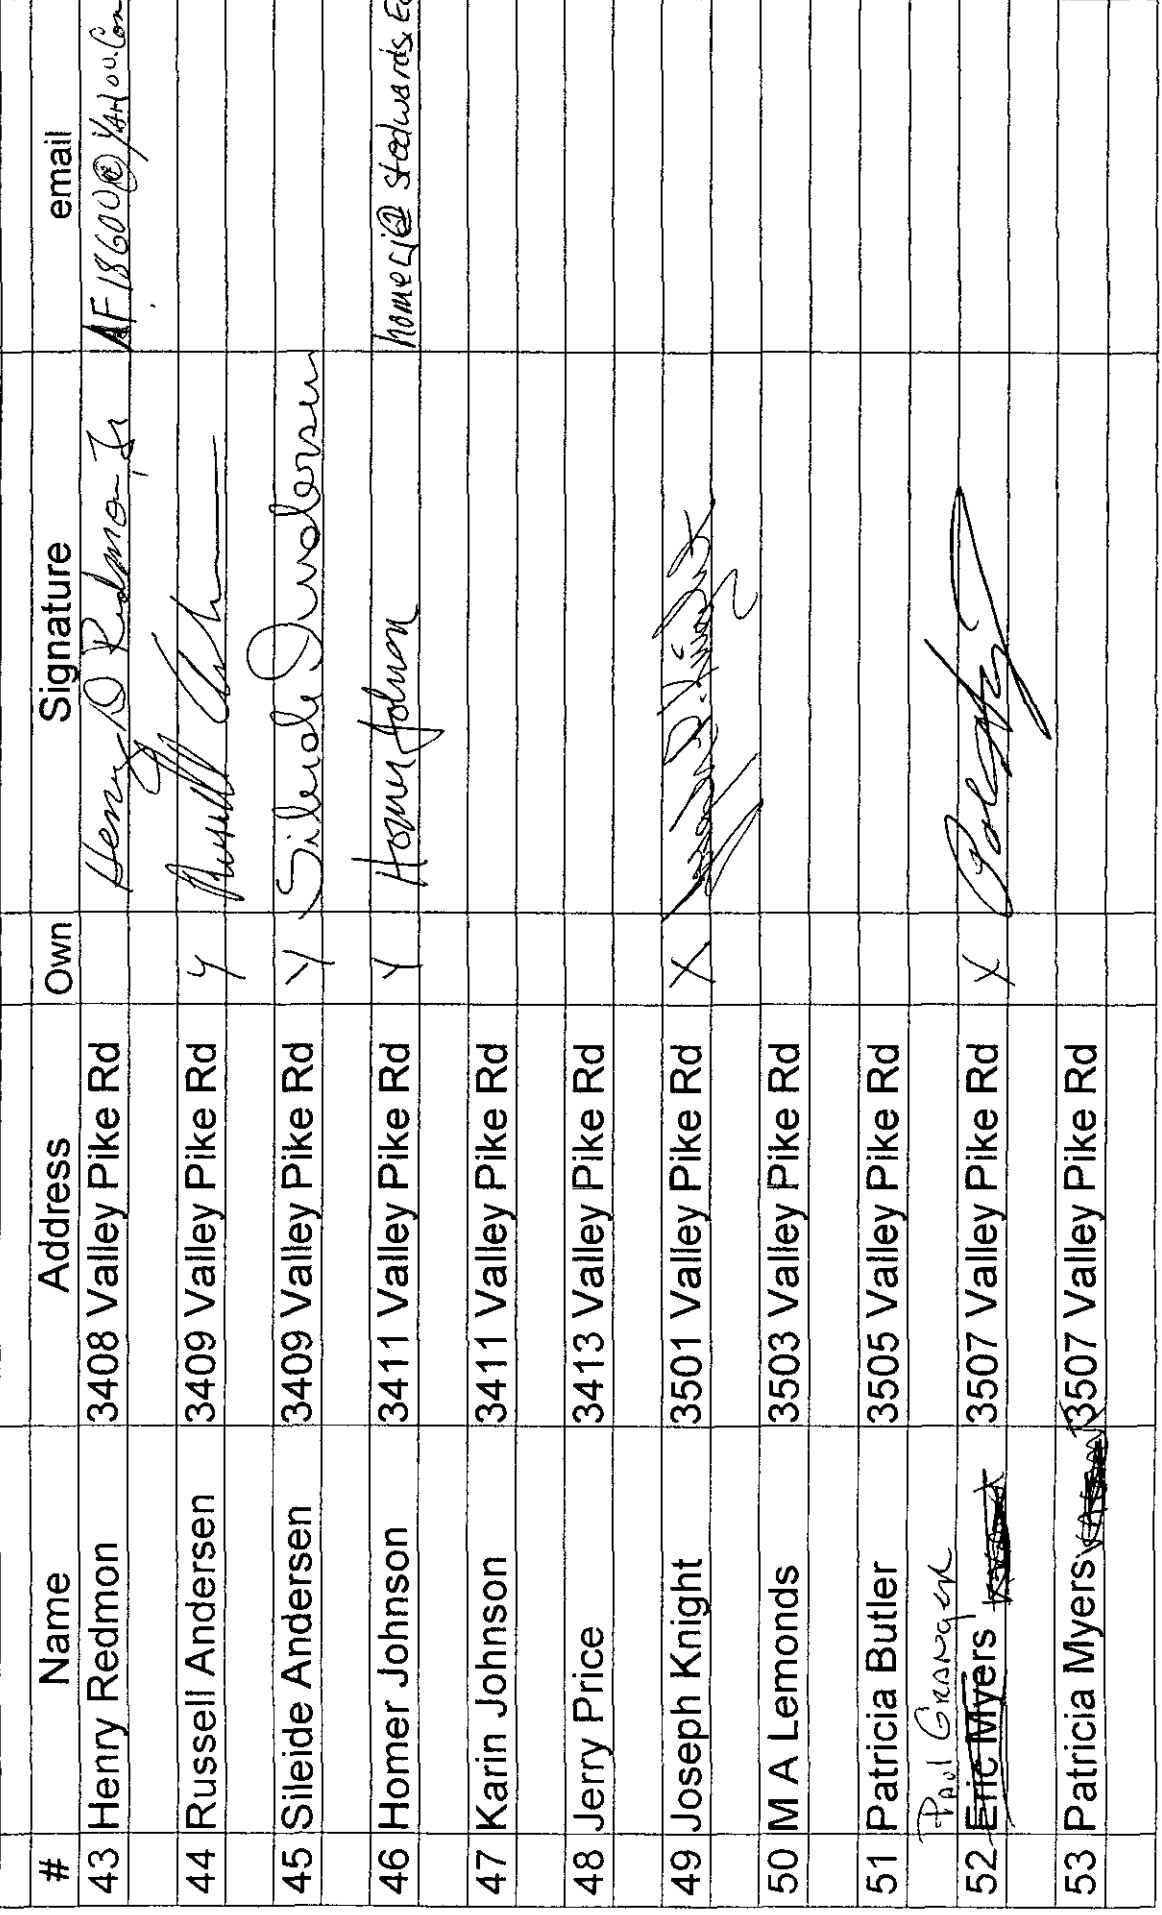 # Name Address Own Signature email
43 Henry Redmon 3408 Valley Pike Rd Henry D Redmon Jr AF18600@YAHOO.Com
44 Russell Andersen 3409 Valley Pike Rd Y Russell
45 Sileide Andersen 3409 Valley Pike Rd Y Sileide Andersen
46 Homer Johnson 3411 Valley Pike Rd Y Homer Johnson homerj@stedwards.Ed
47 Karin Johnson 3411 Valley Pike Rd
48 Jerry Price 3413 Valley Pike Rd
49 Joseph Knight 3501 Valley Pike Rd X
50 M A Lemonds 3503 Valley Pike Rd
51 Patricia Butler 3505 Valley Pike Rd
Paul Granger
52 Eric Myers 3507 Valley Pike Rd X
53 Patricia Myers 3507 Valley Pike Rd